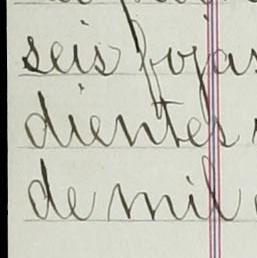 seis fojas
dientes
de mil